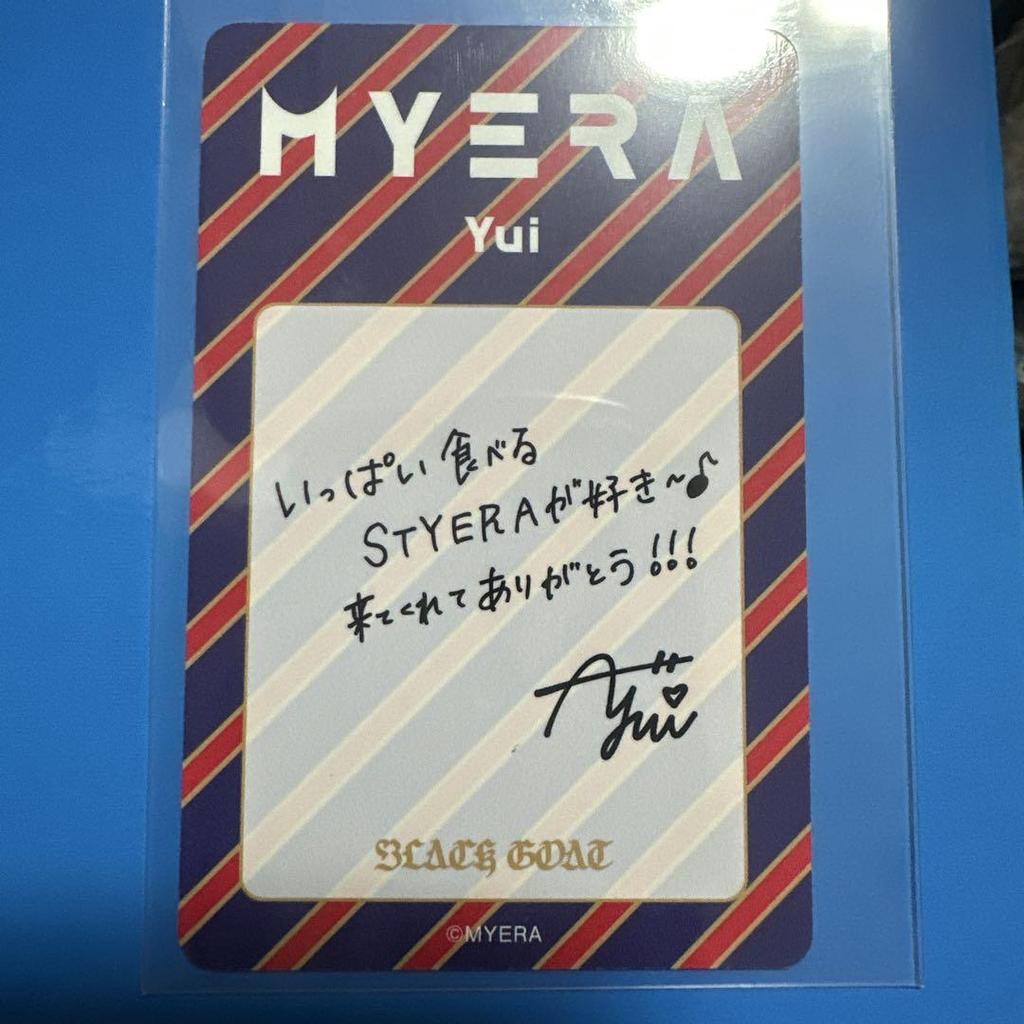 MYERA
Yui
いっぱい食べる
STYERAが好き～♪
来てくれてありがとう!!!
Yui
BLACK GOAT
©MYERA